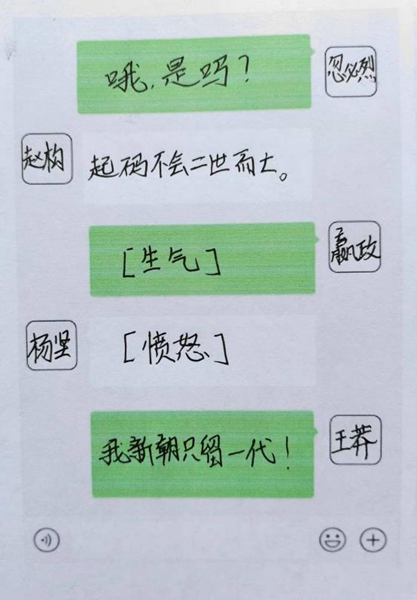 哦,是吗?
忽必烈
赵构
起码不会二世而亡。
[生气]
嬴政
杨坚
[愤怒]
我新朝只留一代!
王莽